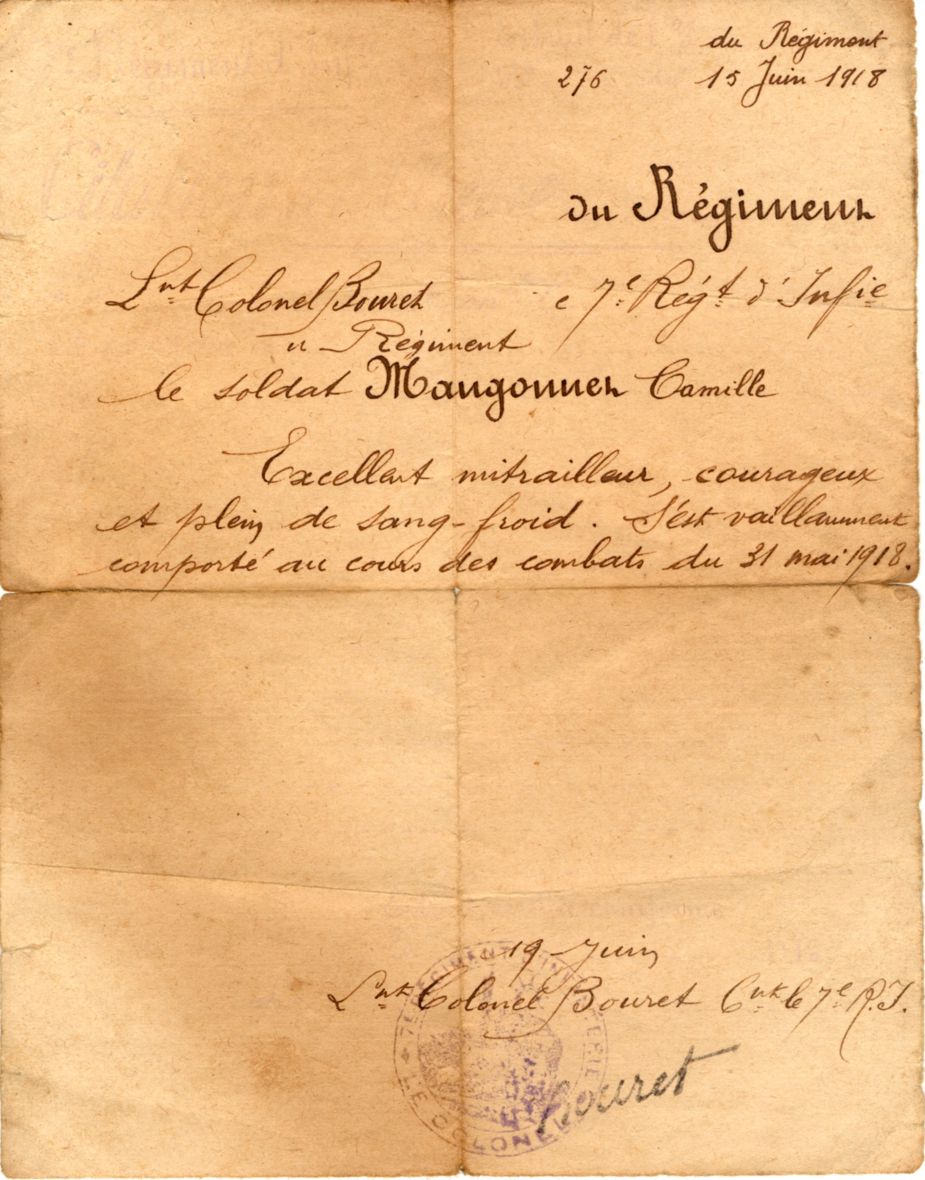 du Régiment
276 15 Juin 1918
du Régiment
Lnt Colonel Bouret e 7e Régt d'Infie
u Régiment
le soldat Mangonnet Camille
Excellent mitrailleur, courageux
et plein de sang-froid. S'est vaillamment
comporté au cours des combats du 31 mai 1918.
19 Juin
Lnt Colonel Bouret Cnt le 7e R.I.
7E REGIMENT D'INFANTERIE
LE COLONEL
Bouret